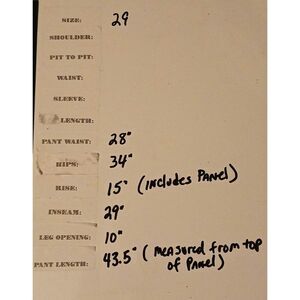 SIZE: 29
SHOULDER:
PIT TO PIT:
WAIST:
SLEEVE:
LENGTH:
PANT WAIST: 28"
HIPS: 34"
RISE: 15" (includes Panel)
INSEAM: 29"
LEG OPENING: 10"
PANT LENGTH: 43.5" (measured from top
of Panel)